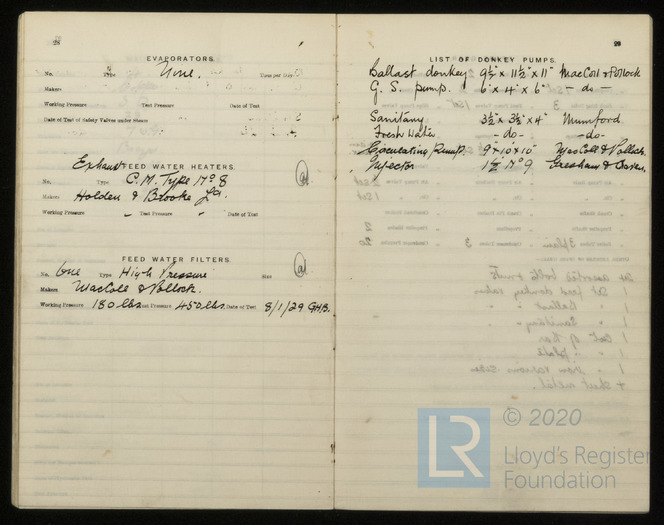 28
EVAPORATORS.
No. Type None. Tons per Day
Makers
Working Pressure Test Pressure Date of Test
Date of Test of Safety Valves under steam
Exhaust FEED WATER HEATERS.
No. Type C.M. Type No 8
Makers Holden & Brooke Ld.
Working Pressure - Test Pressure - Date of Test
FEED WATER FILTERS.
No. One Type High Pressure Size
Makers MacColl & Pollock.
Working Pressure 180 lbs. Test Pressure 450 lbs. Date of Test 8/1/29 G.H.B.
29
LIST OF DONKEY PUMPS.
Ballast donkey 9½" x 11½" x 11" MacColl & Pollock
G. S. pump. 6" x 4" x 6" - do -
Sanitary 3½" x 3½" x 4" Mumford
Fresh Water - do - - do -
Circulating Pump. 9" x 10" x 10" MacColl & Pollock.
Injector 1½" No 9.
© 2020
LR Lloyd's Register
Foundation